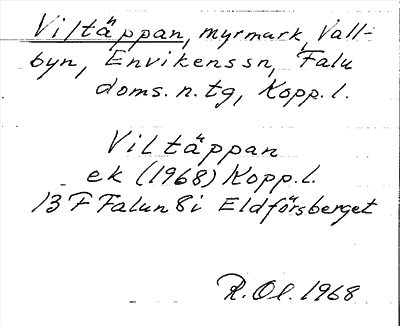 Viltäppan, myrmark, Vall-
byn, Envikenssn, Falu
doms.n.tg, Kopp.l.
Viltäppan
ek (1968) Kopp.l.
13 F Falun 8i Eldförsberget
R.Ol. 1968